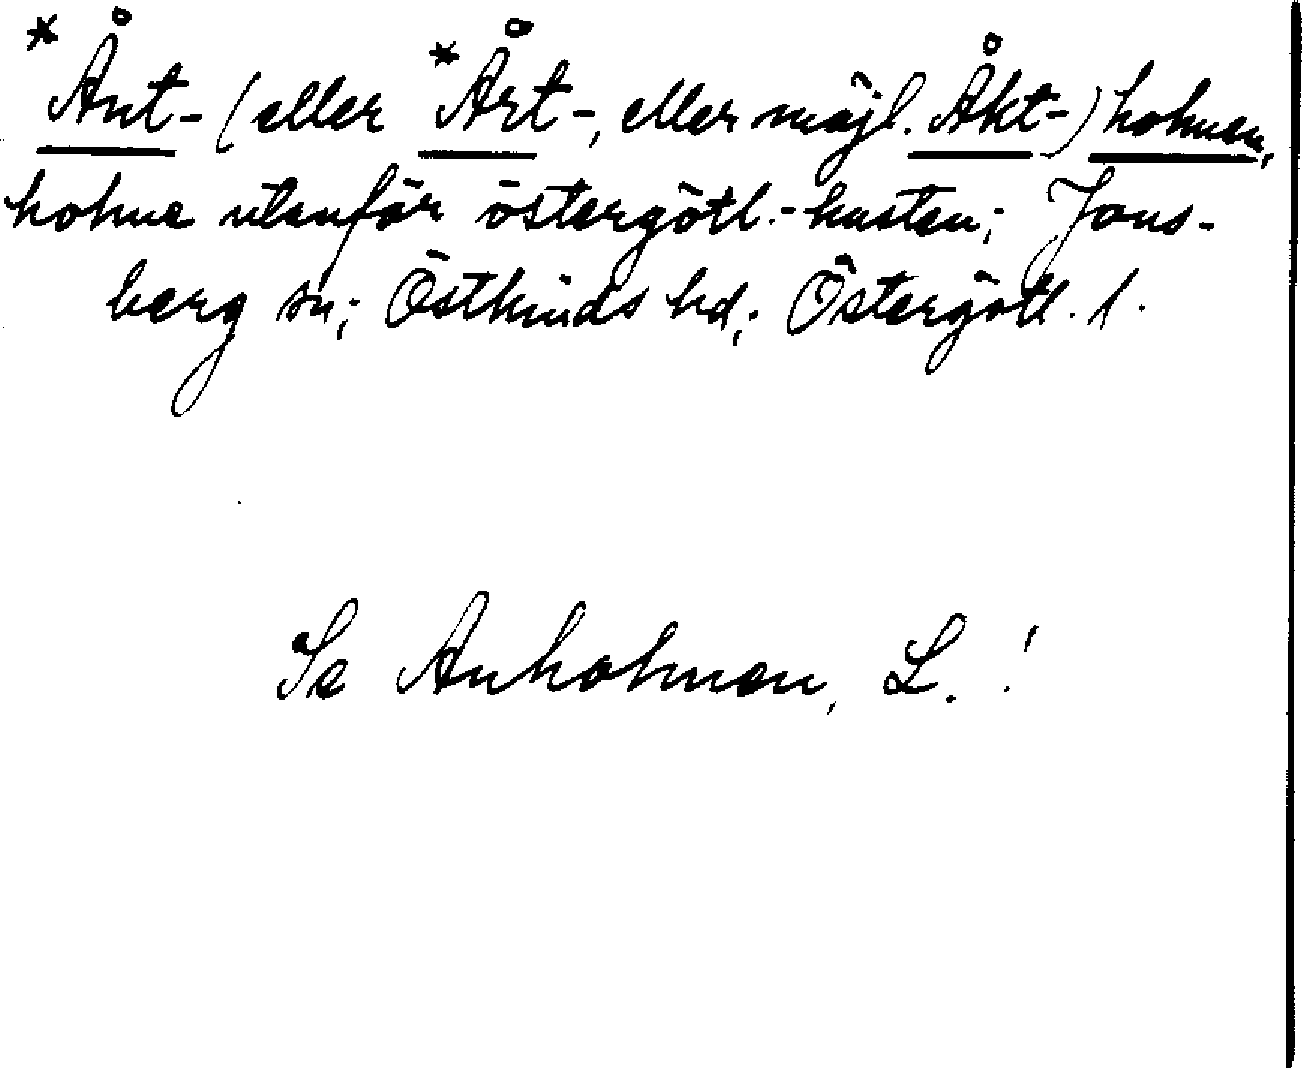 *Ånt- (eller *Årt-, eller möjl. Åkt-) holmen,
holme utanför östergötl.-kusten; Jons-
berg sn; Östkinds hd; Östergötl. l.
Se Anholmen, L.!